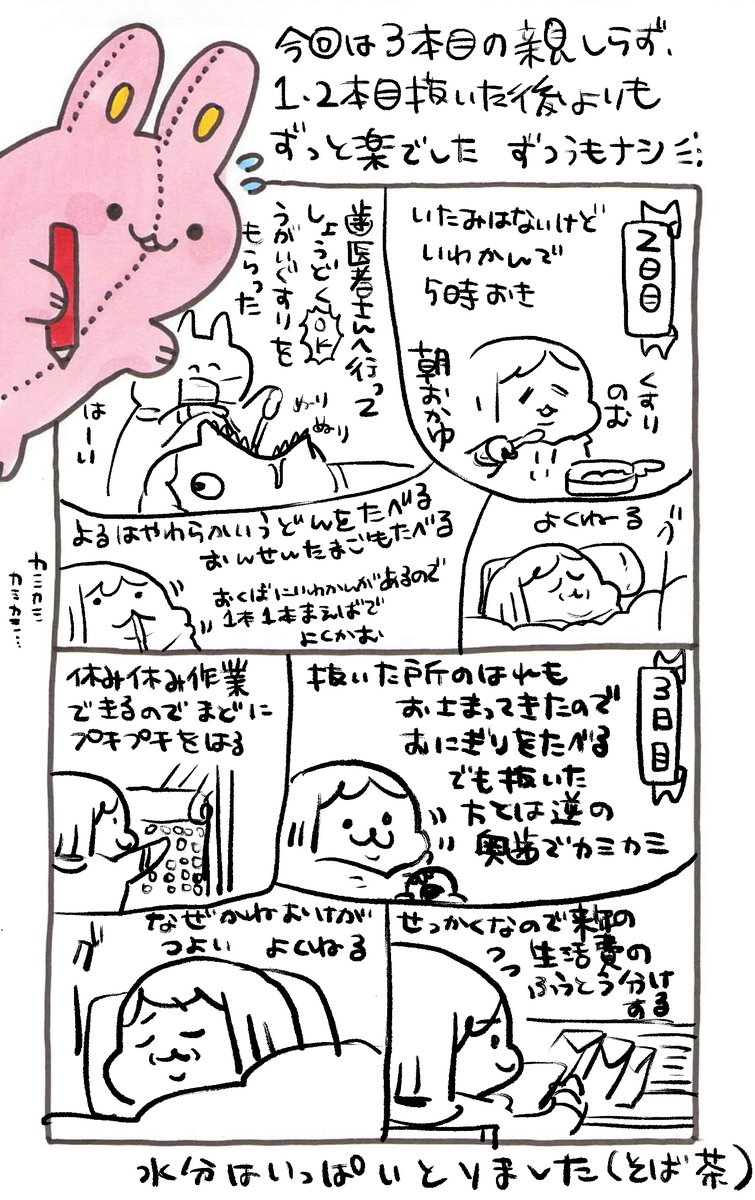 今回は3本目の親しらず、
1、2本目抜いた後よりも
ずっと楽でした ずつうもナシ
2日目
いたみはないけど
いわかんで
5時おき
くすり
のむ
朝おかゆ
歯医者さんへ行って
しょうどく OK
うがいぐすりを
もらった
ぬり
ぬり
はーい
よくねーる
よるはやわらかいうどんをたべる
おんせんたまごもたべる
おくばにいわかんがあるので
1本1本まえばで
よくかむ
カミカミ
カミカミ…
3日目
抜いた所のはれも
おさまってきたので
おにぎりをたべる
でも抜いた
方とは逆の
奥歯でカミカミ
休み休み作業
できるのでまどに
プチプチをはる
せっかくなので来年の
生活費の
ふうとう分け
する
なぜかねよいけが
つよい よくねる
水分はいっぱいとりました(そば茶)